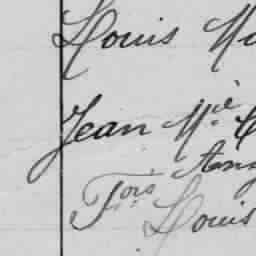 Louis
Jean M.ie
Ang
F.ois
Louis